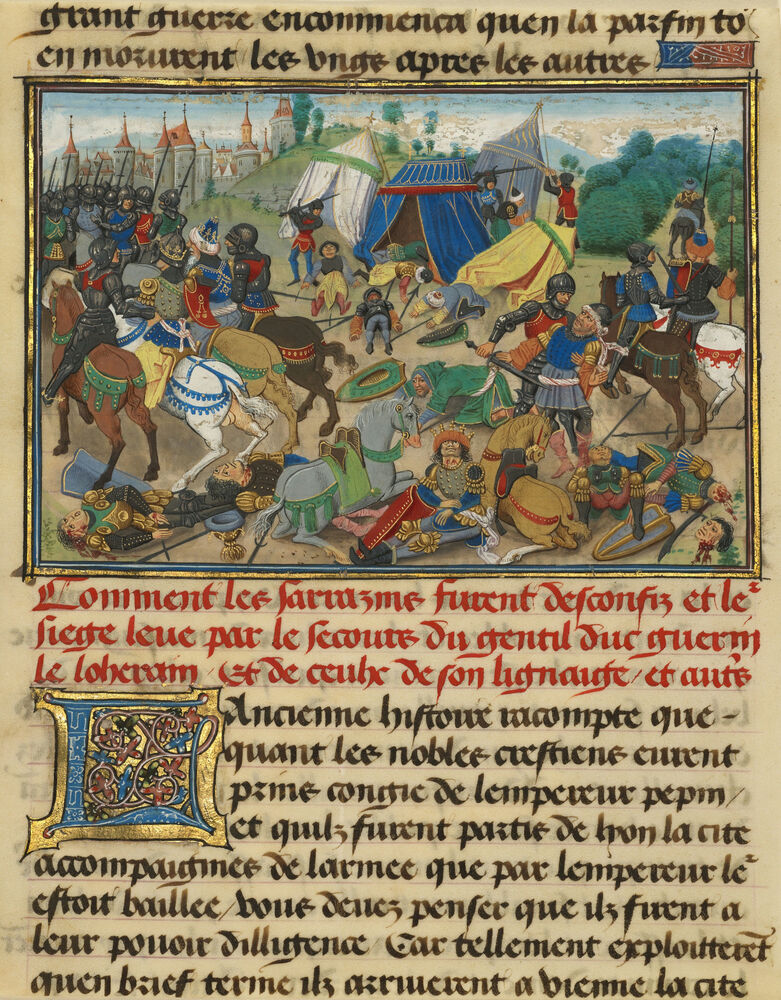 grant guerre encommenca quen la parfin to
en morurent les vngs apres les autres
Comment les sarrazins furent desconfiz et le
siege leue par le secours du gentil duc guerin
le loherain / Et de ceulx de son lignaige / et aut's
LAncienne histoire racompte que -
quant les nobles crestiens eurent
prins congie de lempereur pepin /
et quilz furent partis de lyon la cite
accompaignies de larmee que par lempereur le'
estoit baillee / vous deuez penser que ilz firent a
leur pouoir dilligence / Car tellement exploitterēt
quen brief terme ilz arriuerent a vienne la cite